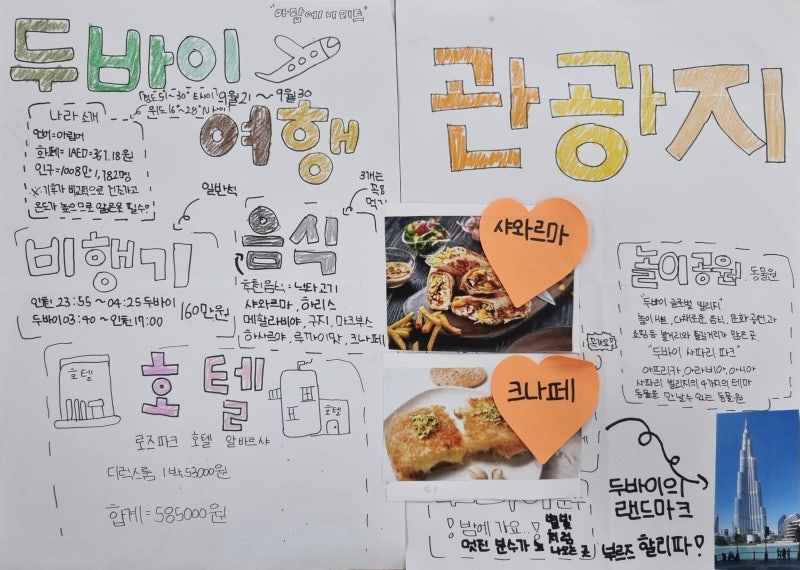 "아랍에미리트"
두바이
여행
9월21 ~ 9월30
나라 소개
언어=아랍어
화폐=1AED=367.18원
인구=1008만 1,782명
※기후가 비교적으로 건조하고
온도가 높으므로 얇은옷 필수?
일반석
비행기
인천 23:55 ~ 04:25 두바이
두바이 03:40 ~ 인천 17:00
160만원
3개는
꼭!!
먹기
음식
추천음식 = 노란고기
샤와르마, 하리스
메할라비야, 쿠지, 마크부스
하사르야, 루까이맛, 크나페
호텔
호텔
호텔
로즈파크 호텔 알바르샤
디럭스룸 1박 53000원
합계=585000원
관광지
샤와르마
크나페
놀이공원, 동물원
"두바이 글로벌 빌리지"
놀이기구, 다채로운 음식, 문화공연과
쇼핑 등 볼거리와 즐길거리가 많은 곳.
"두바이 사파리 파크"
아프리카, 아라비아, 아시아
사파리 빌리지의 4가지의 테마
동물을 만날수 있는 동물원
밤에 가요..!
멋진 분수가
나오는 곳
두바이의
랜드마크
부르즈 할리파!